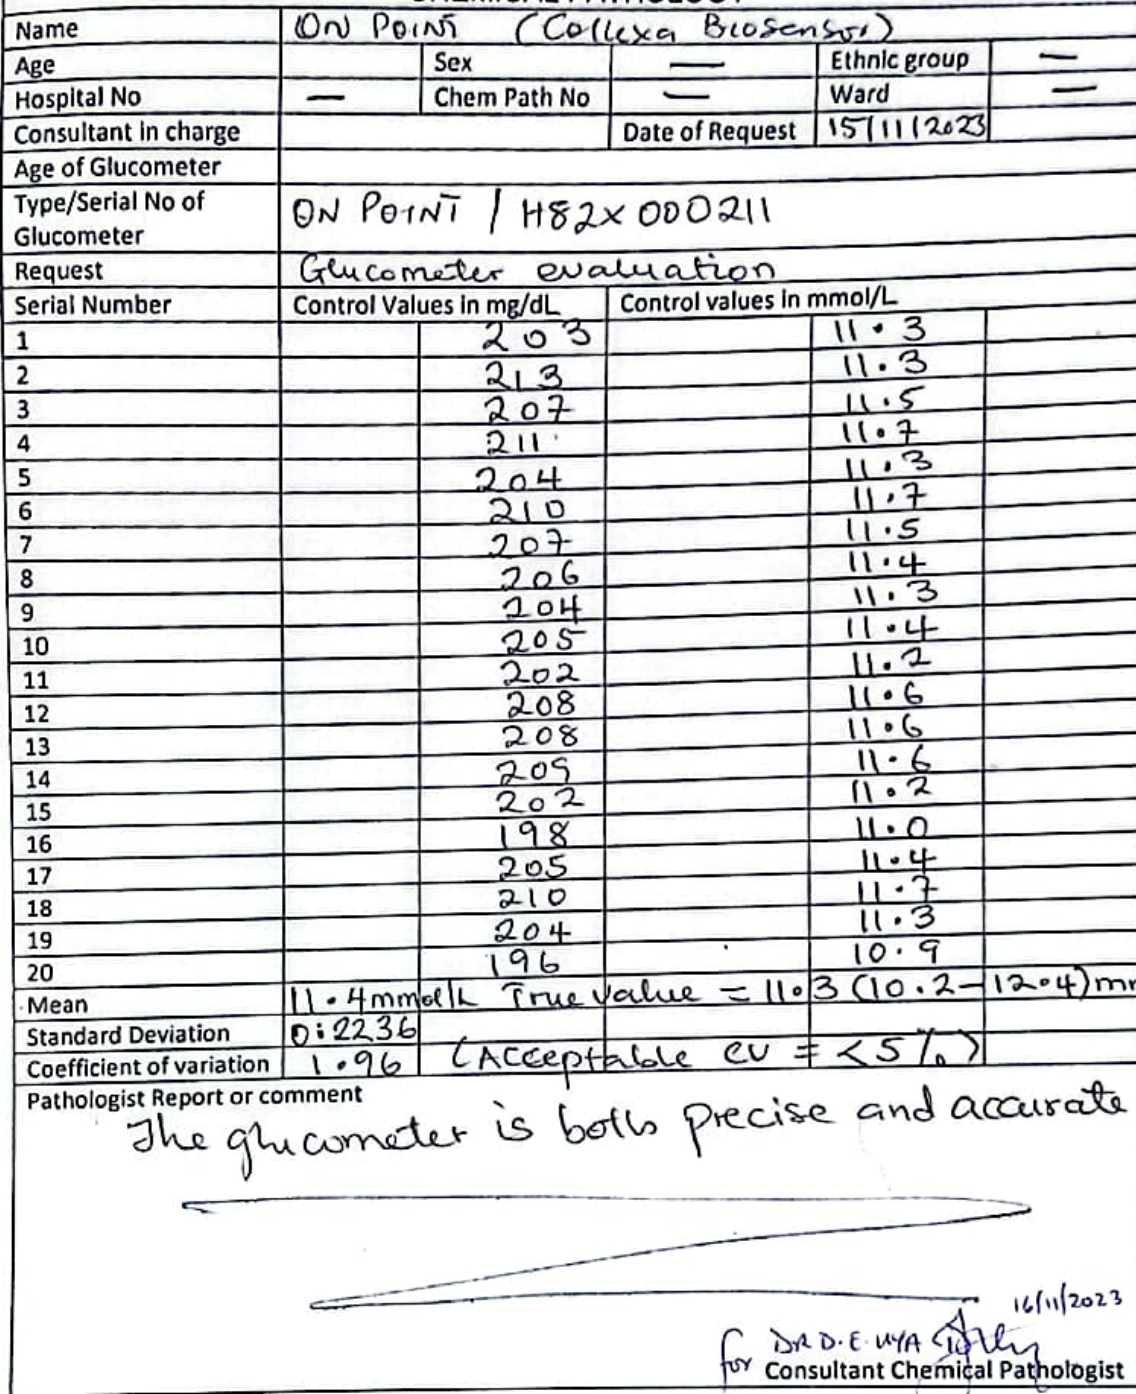 Name ON POINT (Collexa Biosensor)
Age Sex — Ethnic group —
Hospital No — Chem Path No — Ward —
Consultant in charge Date of Request 15/11/2023
Age of Glucometer
Type/Serial No of Glucometer ON POINT / H82X000211
Request Glucometer evaluation
Serial Number Control Values in mg/dL Control values in mmol/L
1 203 11.3
2 213 11.3
3 207 11.5
4 211 11.7
5 204 11.3
6 210 11.7
7 207 11.5
8 206 11.4
9 204 11.3
10 205 11.4
11 202 11.2
12 208 11.6
13 208 11.6
14 209 11.6
15 202 11.2
16 198 11.0
17 205 11.4
18 210 11.7
19 204 11.3
20 196 10.9
Mean 11.4mmol/L True value = 11.3 (10.2-12.4)
Standard Deviation 0:2236
Coefficient of variation 1.96 (Acceptable CV = <5%)
Pathologist Report or comment
The glucometer is both precise and accurate
16/11/2023
for DR D.E. UYA
Consultant Chemical Pathologist